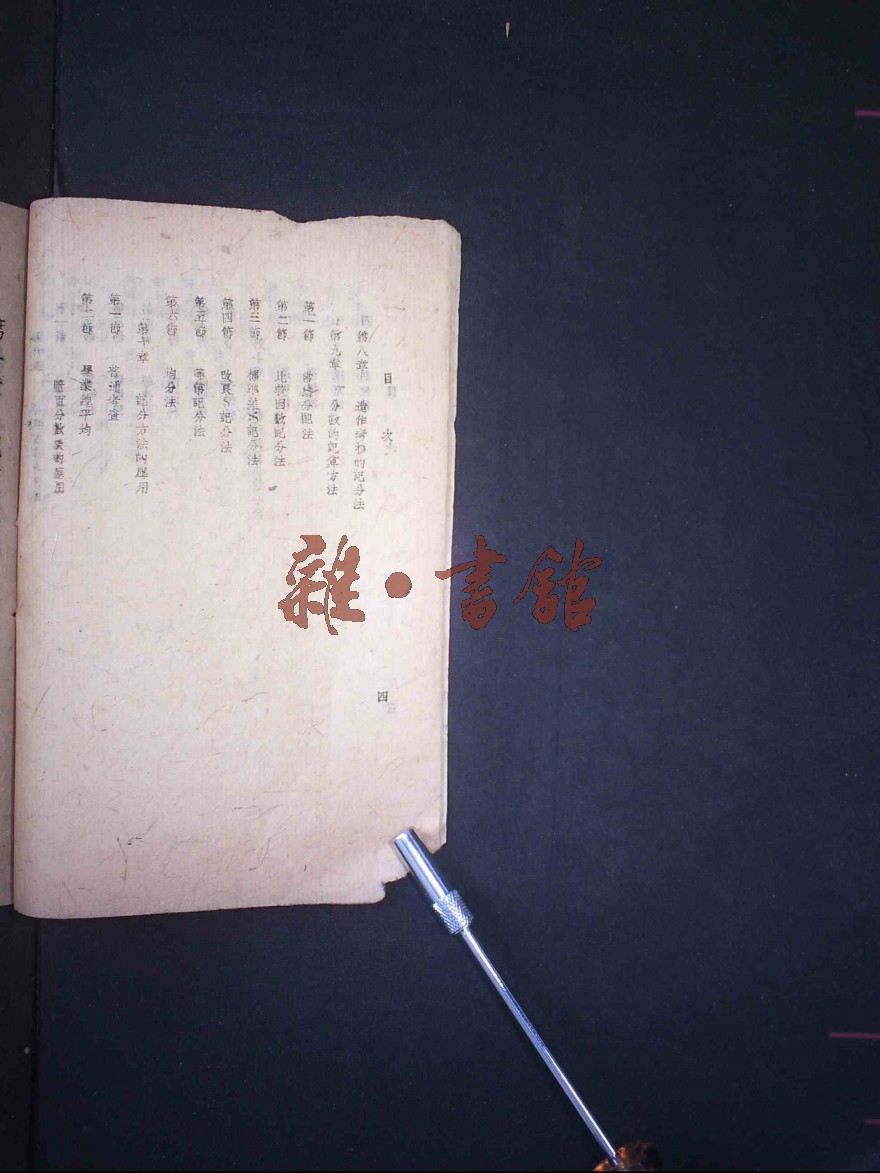 目次
四
第八章 造作資格的記分法
第九章 分數的記算方法
第一節 常態分配法
第二節 比較因數記分法
第三節 標準差S記分法
第四節 改良S記分法
第五節 等第記分法
第六節 均分法
第十章 記分方法的應用
第一節 普通考查
第二節 學業總平均
附百分數表的應用
雜•書館